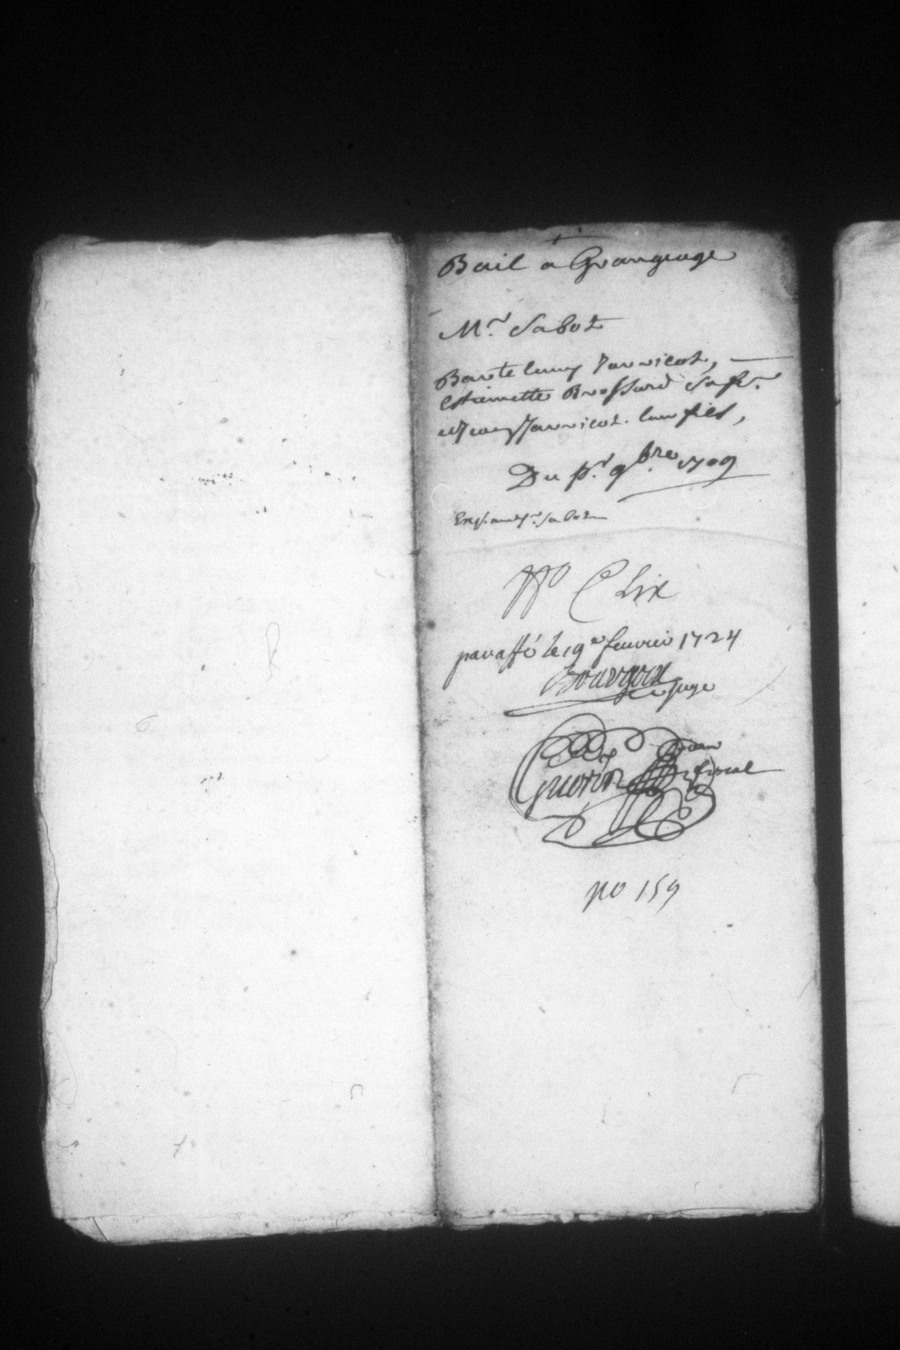 Bail a Grangeage
Mr. Sabot
Bartelemy Janvicot,
Estiennette Brossard sa fe.
et Janvicot leur fils,
Du pr. 9bre 1709
Exp. Sabot
No C Lix
paraffé le 19e feuvrier 1724
Bourgoix
juge
Guerin
fiscal
no 159